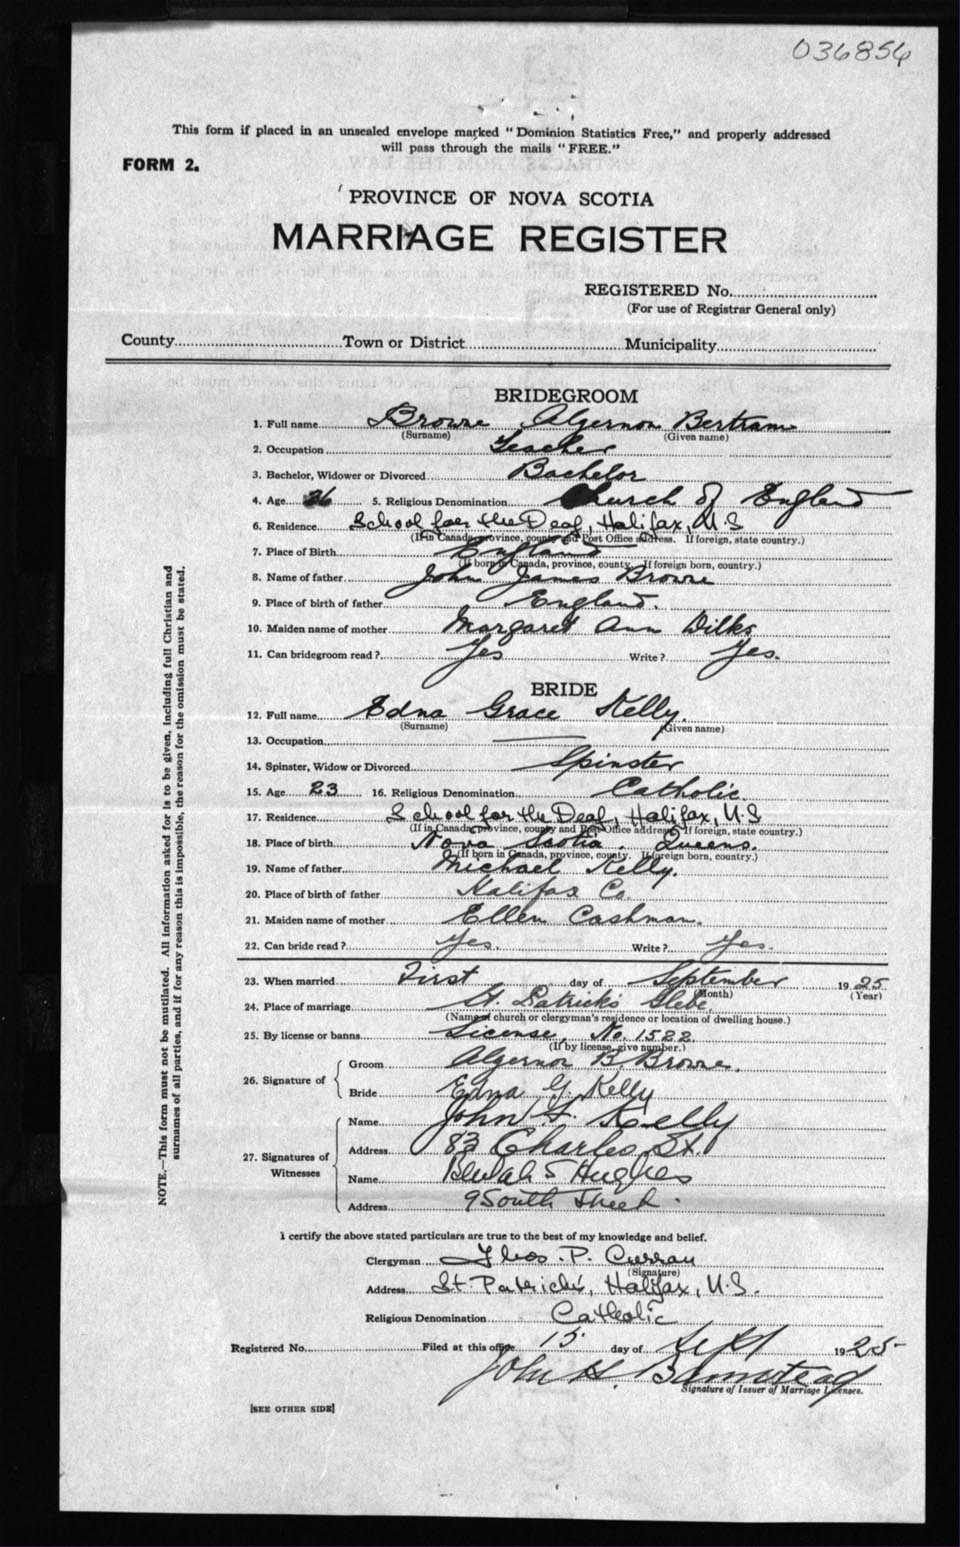 036856
This form if placed in an unsealed envelope marked "Dominion Statistics Free," and properly addressed
will pass through the mails "FREE."
FORM 2.
PROVINCE OF NOVA SCOTIA
MARRIAGE REGISTER
REGISTERED No.
(For use of Registrar General only)
County Town or District Municipality
BRIDEGROOM
1. Full name Browne Algernon Bertram
(Surname) (Given name)
2. Occupation Teacher
3. Bachelor, Widower or Divorced Bachelor
4. Age 26 5. Religious Denomination Church of England
6. Residence School for the Deaf, Halifax, N.S
(If in Canada, province, county and Post Office address. If foreign, state country.)
7. Place of Birth England
(If born in Canada, province, county. If foreign born, country.)
8. Name of father John James Browne
9. Place of birth of father England.
10. Maiden name of mother Margaret Ann Dilks
11. Can bridegroom read? Yes Write? Yes.
BRIDE
12. Full name Edna Grace Kelly.
(Surname) (Given name)
13. Occupation
14. Spinster, Widow or Divorced Spinster
15. Age 23 16. Religious Denomination Catholic
17. Residence School for the Deaf, Halifax, N.S
(If in Canada, province, county and Post Office address. If foreign, state country.)
18. Place of birth Nova Scotia. Queens.
(If born in Canada, province, county. If foreign born, country.)
19. Name of father Michael Kelly.
20. Place of birth of father Halifax Co
21. Maiden name of mother Ellen Cashman.
22. Can bride read? Yes. Write? Yes.
23. When married First day of September 1925
(Month) (Year)
24. Place of marriage St. Patrick's Glebe
(Name of church or clergyman's residence or location of dwelling house.)
25. By license or banns License, No. 1522
(If by license, give number.)
26. Signature of Groom Algernon B. Browne.
Bride Edna G. Kelly
27. Signatures of Witnesses Name John F. Kelly
Address 83 Charles St.
Name Beulah S Hughes
Address 9 South Street.
I certify the above stated particulars are true to the best of my knowledge and belief.
Clergyman Thos. P. Curran
(Signature)
Address St. Patrick's, Halifax, N.S.
Religious Denomination Catholic
Registered No. Filed at this office 15 day of Sept 1925
John H. Barnstead
Signature of Issuer of Marriage Licenses.
[SEE OTHER SIDE]
NOTE.—This form must not be mutilated. All information asked for is to be given, including full Christian and
surnames of all parties, and if for any reason this is impossible, the reason for the omission must be stated.